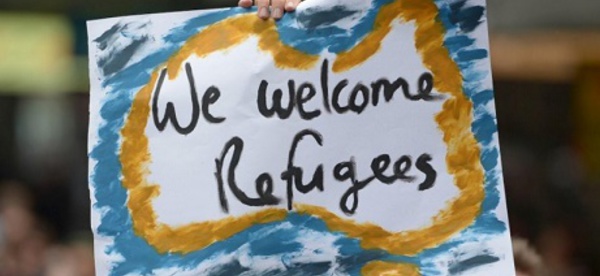 We welcome
Refugees